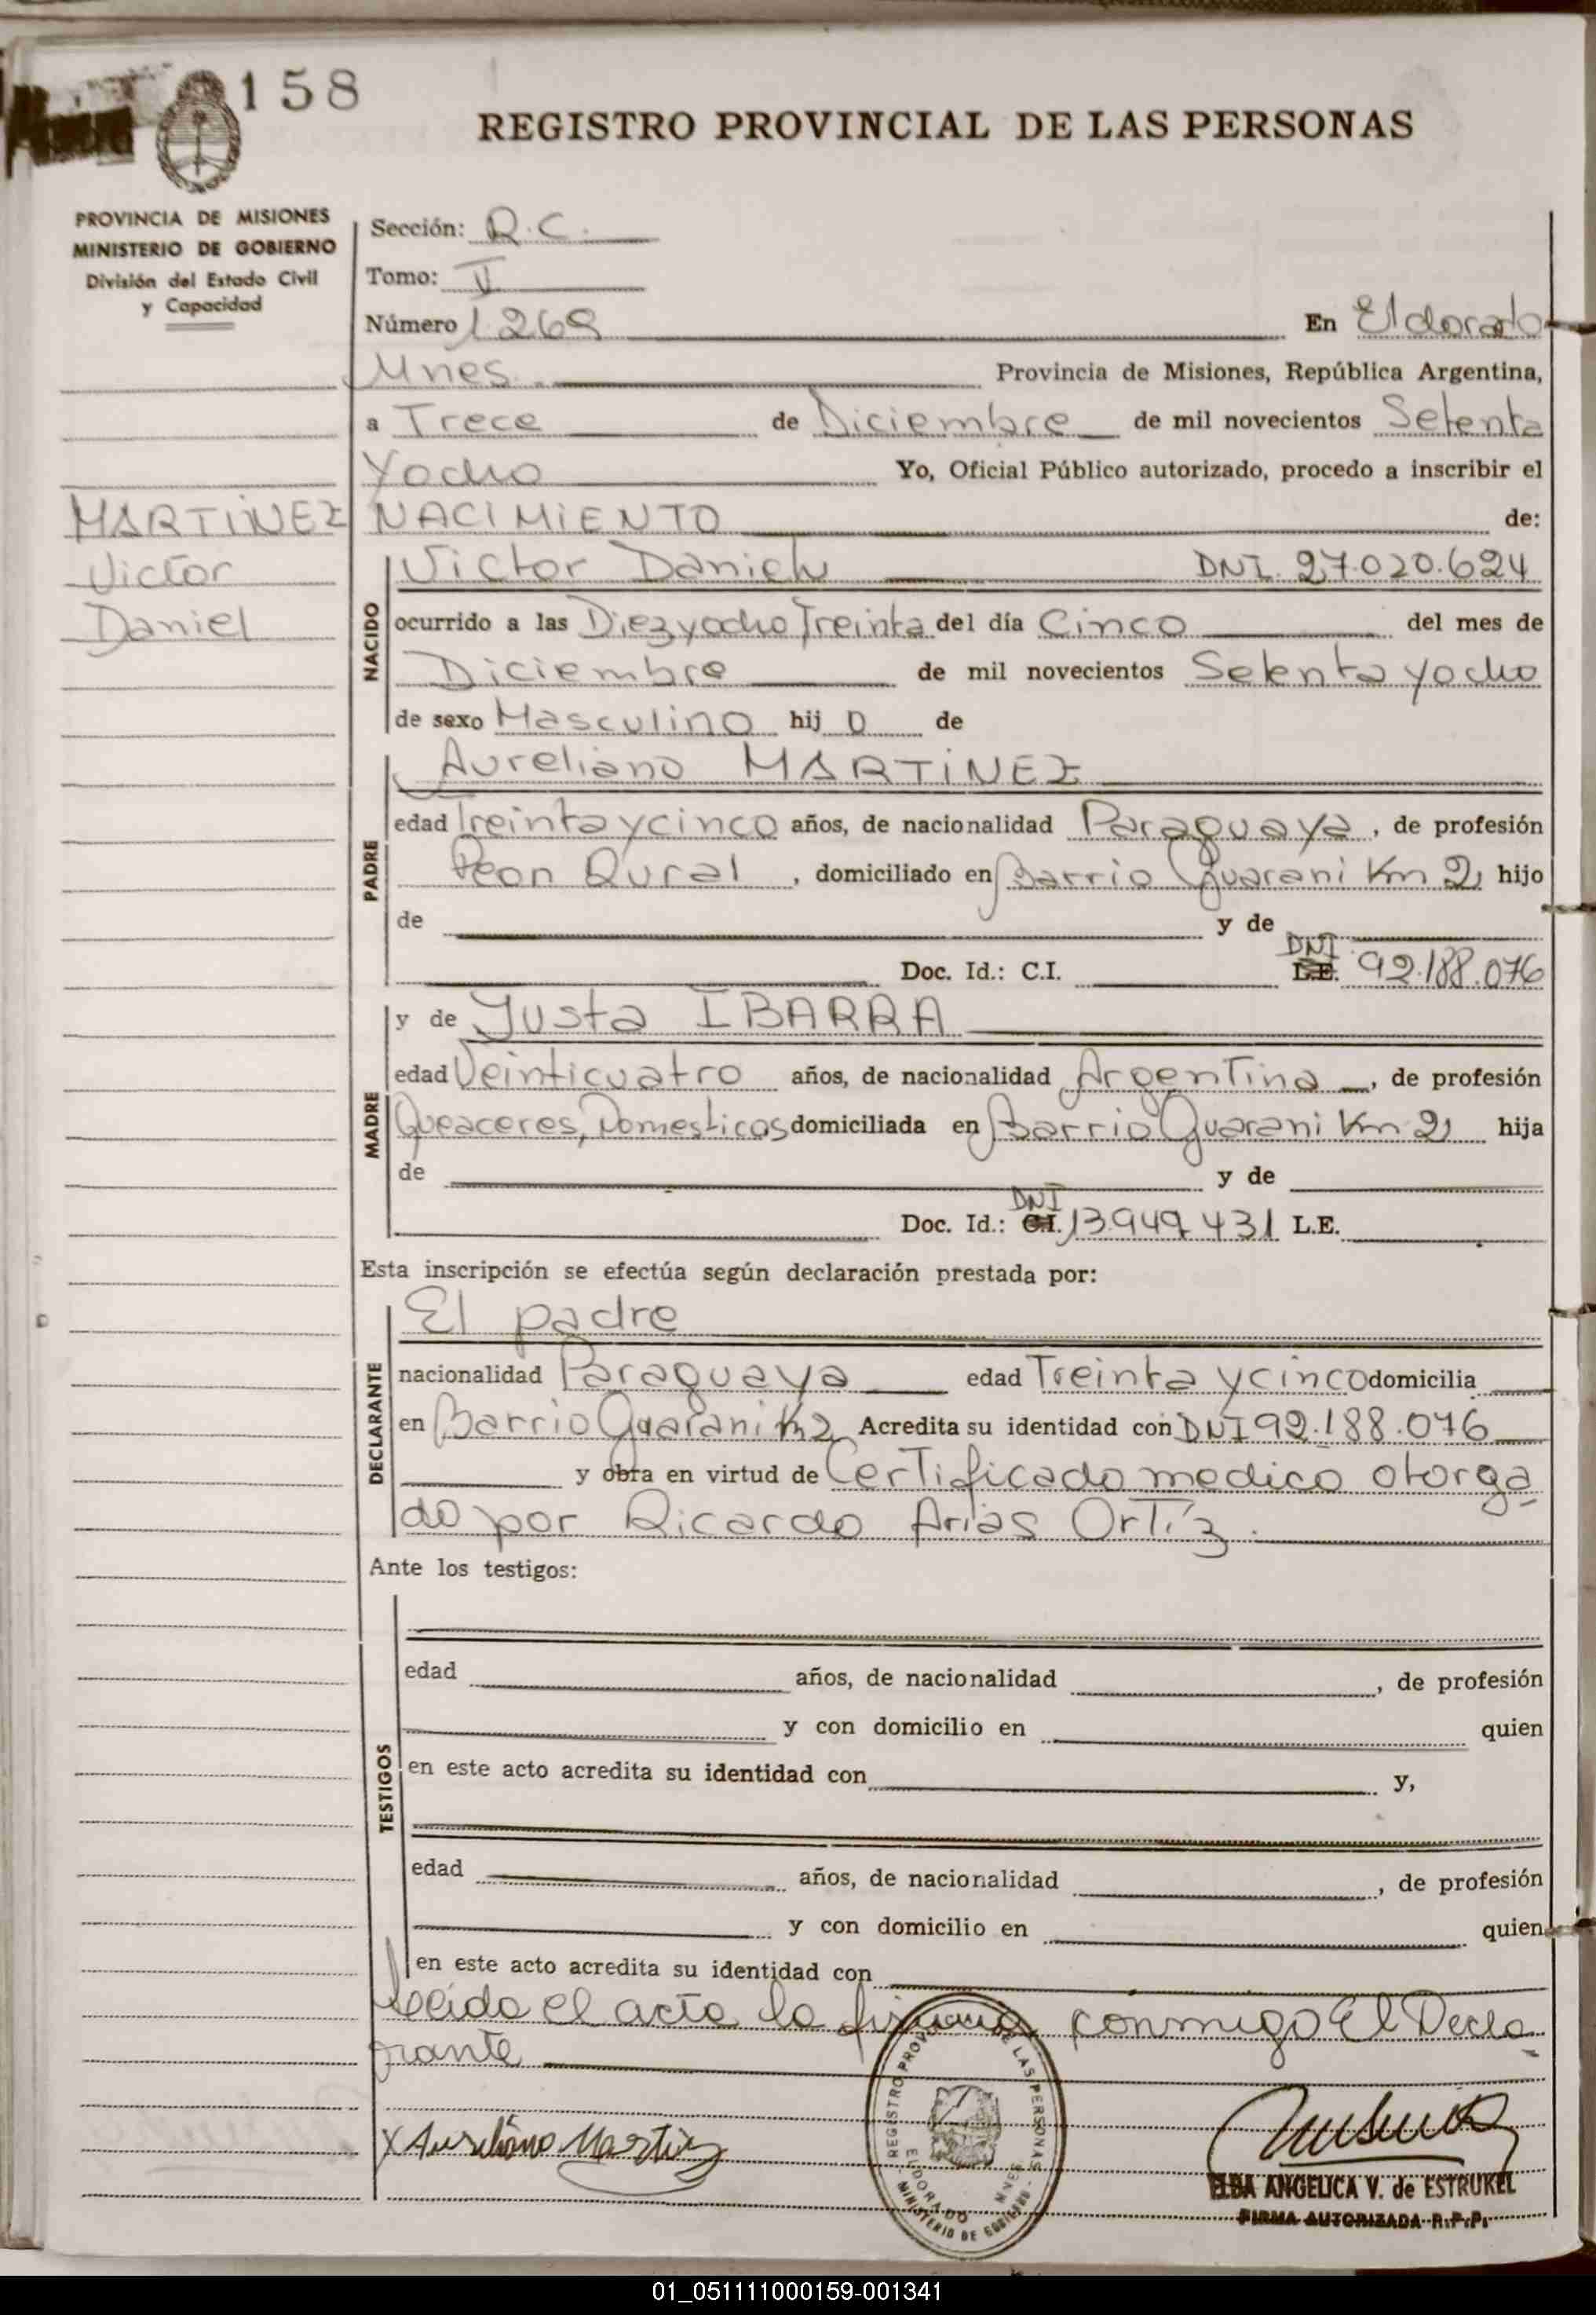 158
REGISTRO PROVINCIAL DE LAS PERSONAS
PROVINCIA DE MISIONES
MINISTERIO DE GOBIERNO
División del Estado Civil
y Capacidad
MARTINEZ
Victor
Daniel
Sección: R.C.
Tomo: II
Número 1269 En Eldorado
Mnes Provincia de Misiones, República Argentina,
a Trece de Diciembre de mil novecientos Setenta
Yocho Yo, Oficial Público autorizado, procedo a inscribir el
NACIMIENTO de:
NACIDO
Victor Daniel DNI. 27.020.624
ocurrido a las Diezyocho Treinta del día Cinco del mes de
Diciembre de mil novecientos Setenta yocho
de sexo Masculino hij o de
PADRE
Aureliano MARTINEZ
edad Treintaycinco años, de nacionalidad Paraguaya, de profesión
Peon Rural, domiciliado en Barrio Guarani Km 2, hijo
de y de
Doc. Id.: C.I. L.E. DNI 92.188.076
MADRE
y de Justa IBARRA
edad Veinticuatro años, de nacionalidad Argentina, de profesión
Queaceres, Domesticos domiciliada en Barrio Guarani Km 2, hija
de y de
Doc. Id.: C.I. DNI 13.949.431 L.E.
Esta inscripción se efectúa según declaración prestada por:
DECLARANTE
El padre
nacionalidad Paraguaya edad Treinta ycinco domicilia
en Barrio Guarani K2 Acredita su identidad con DNI 92.188.076
y obra en virtud de Certificado medico otorga
do por Ricardo Arias Ortíz.
Ante los testigos:
TESTIGOS
edad años, de nacionalidad , de profesión
y con domicilio en quien
en este acto acredita su identidad con y,
edad años, de nacionalidad , de profesión
y con domicilio en quien
en este acto acredita su identidad con
Leido el acta la firma conmigo El Decla
rante
X Aureliano Martinez
REGISTRO PROVINCIAL DE LAS PERSONAS
ELDORADO MNES
MINISTERIO DE GOBIERNO
ELBA ANGELICA V. de ESTRUKEL
FIRMA AUTORIZADA R.P.P.
01_051111000159-001341